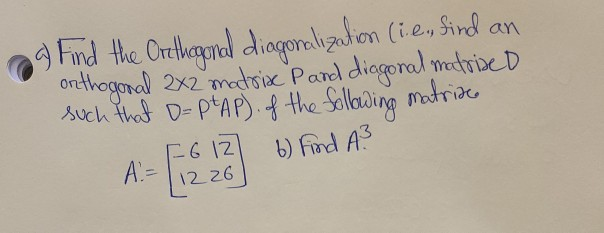 a) Find the Orthogonal diagonalization (i.e., find an
orthogonal 2x2 matrix P and diagonal matrix D
such that D= PᵗAP). of the following matrix
A:= [-6 12 b) Find A³.
12 26]